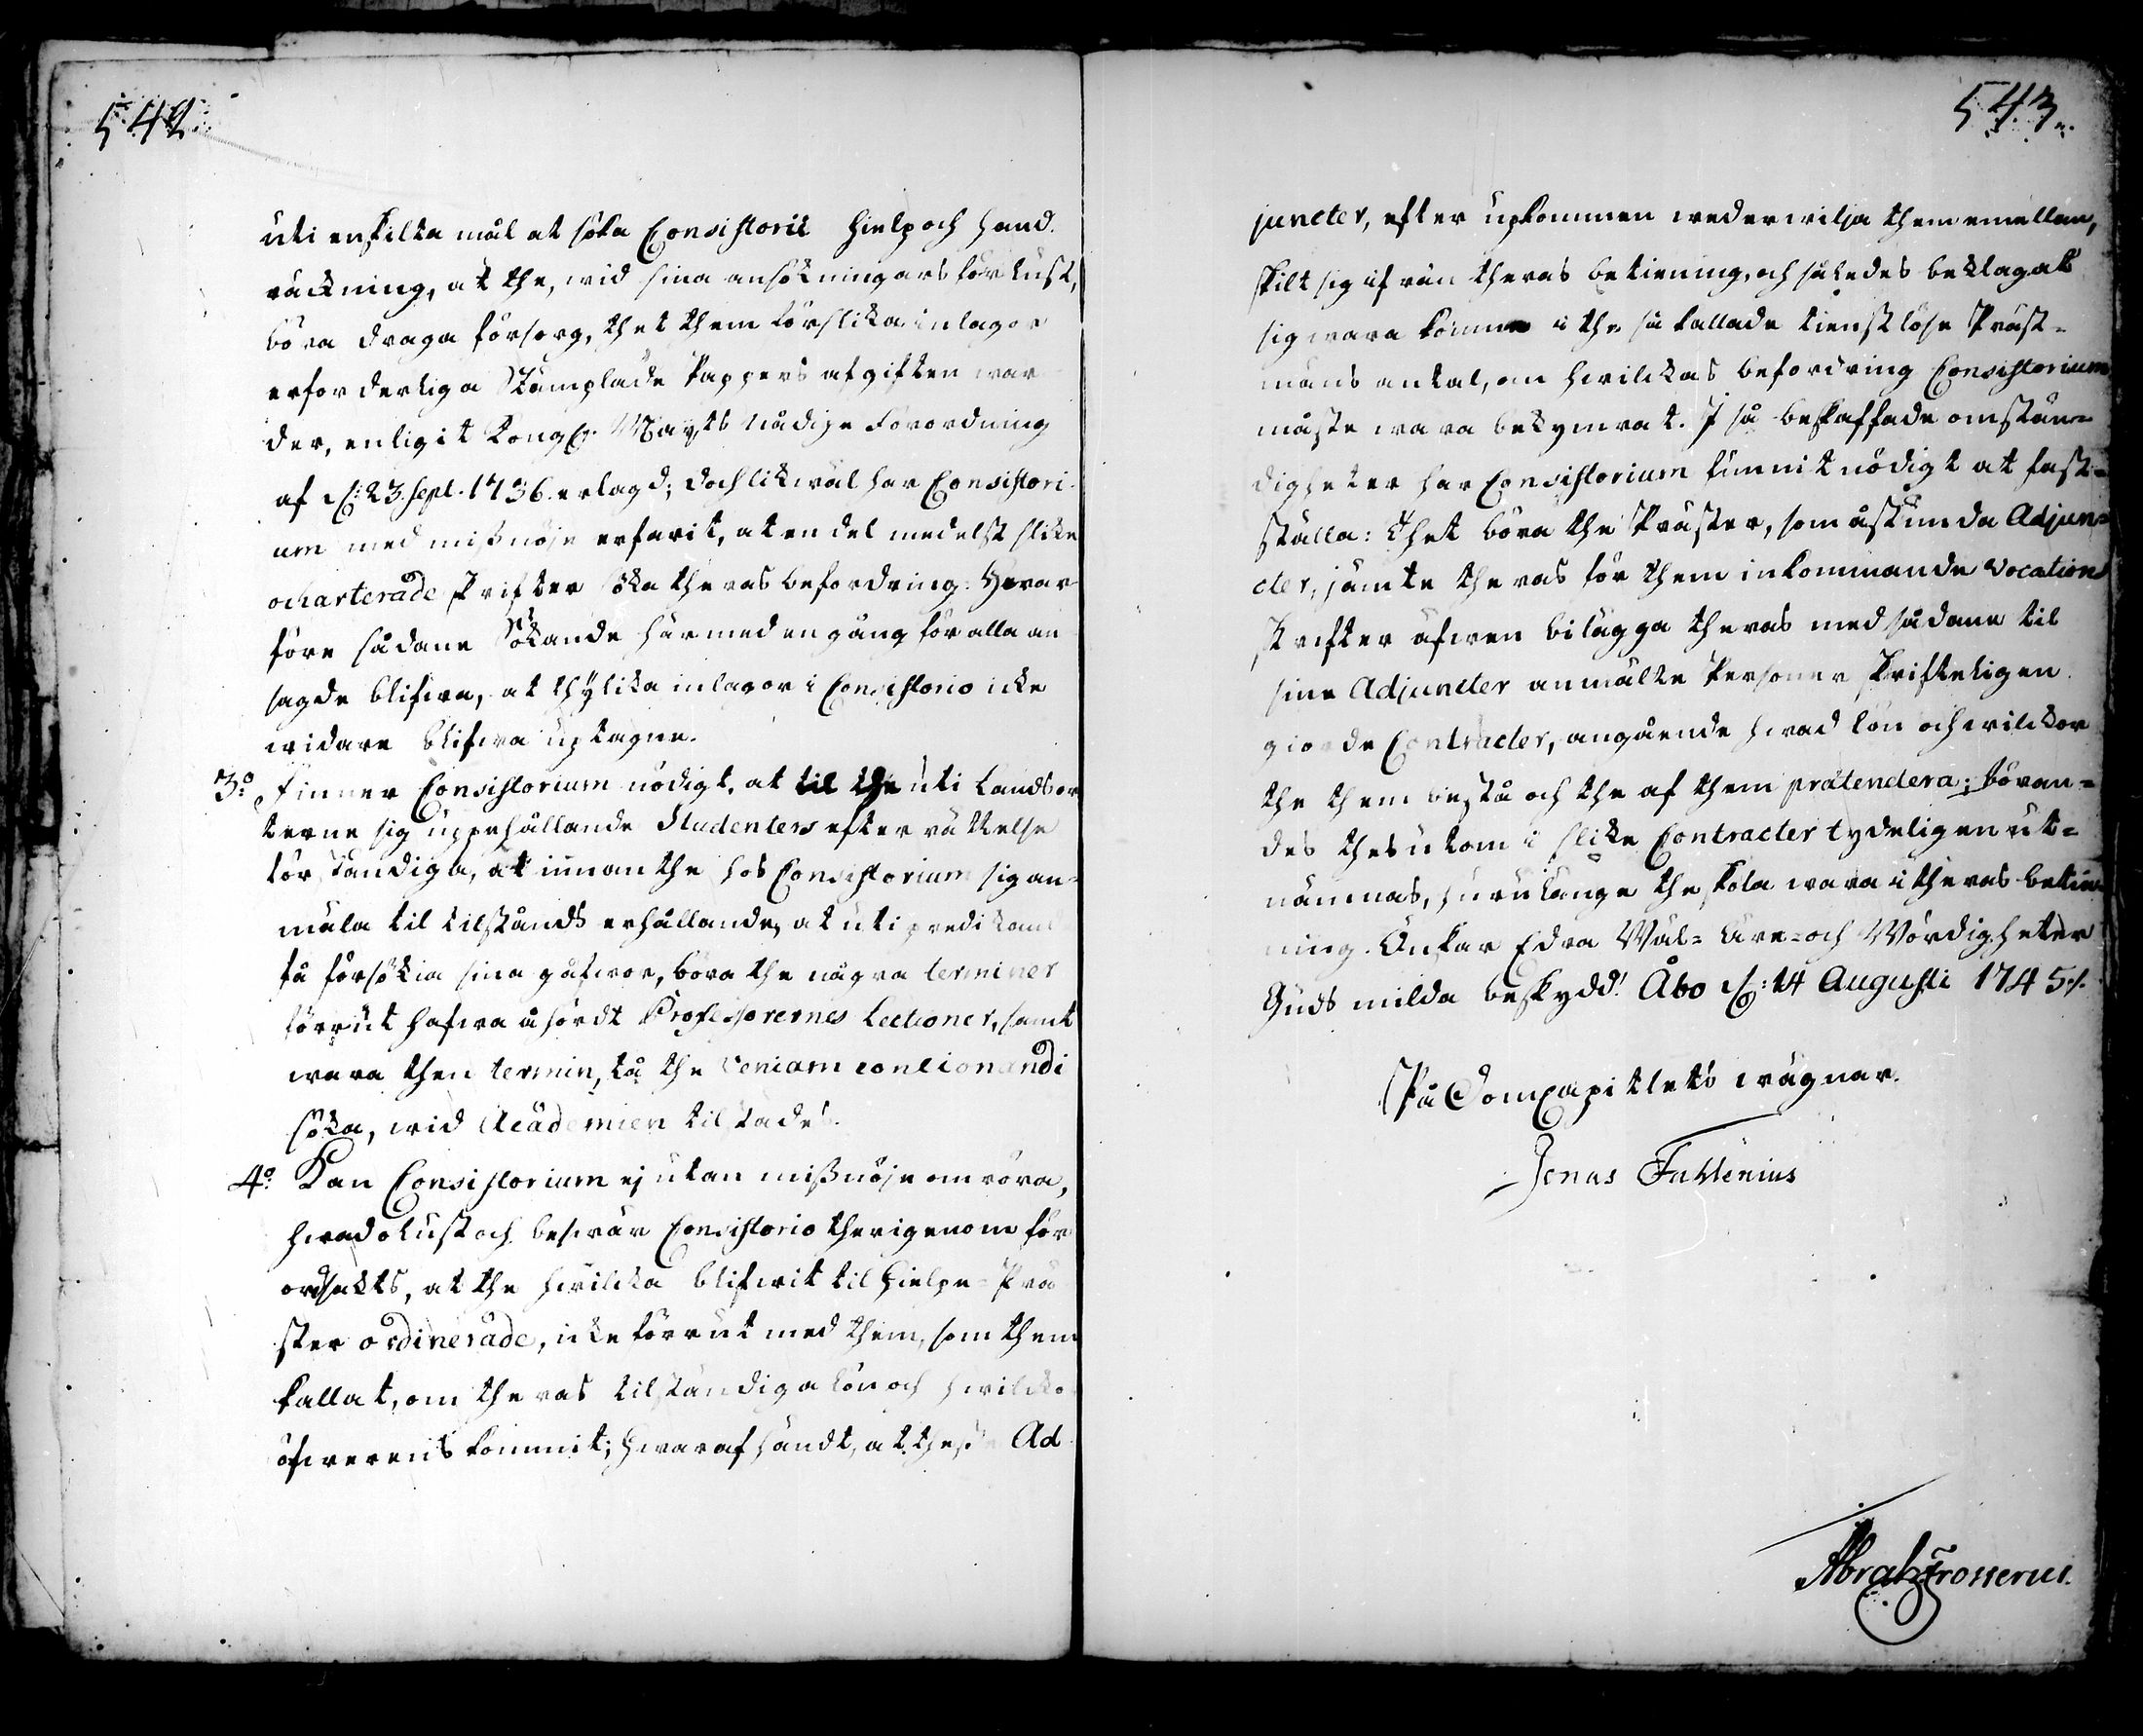 542
uti enskilta mål at söka Consistorii hielp och hand-
räckning, at the, wid sina ansökningars förlust,
böra draga försorg, thet them för slika inlagor
erforderliga Stämplade Pappers afgiften war-
der, enligit Kongl. Maÿts Nådige Förordning
af d: 23. Sept. 1736. erlagd; doch likwäl har Consistori-
um med missnöje erfarit, at en del medelst slike
ocharterade skrifter söka theras befordring. Hwar-
före sådane Sökande härmed en gång för alla an-
sagde blifwa, at thylika inlagor i Consistorio icke
widare blifwa uptagne.
3:o Finner Consistorium nödigt, at til the uti landsor-
terne sig uppehållande Studenters efterrättelse
förständiga, at innan the hos Consistorium sig an-
mäla til tilstånds erhållande, at uti predikand
få försökia sina gåfwor, böra the några terminer
förrut hafwa åhördt Professorernes Lectioner, samt
wara then termin, tå the veniam concionandi
söka, wid Academien tilstades.
4:o Kan Consistorium ej utan missnöje omröra,
hwad olust och beswär Consistorio therigenom för-
ordsakts, at the hwilcka blifwit til Hielpe-Prä-
ster ordinerade, icke förrut med them, som them
kallat, om theras tilständiga lön och hwilcko
öfwerens kommit; hwaraf händt, at thesse Ad-
543.
juncter, efter upkommen wederwilja them emellan,
skilt sig ifrån theras betiening, och således beklagat
sig wara komne i the så kallade tienstlöse Präst-
mäns antal, om hwilckas befordring Consistorium
måste wara bekymrat. I så beskaffade omstän-
digheter har Consistorium funnit nödigt at fast-
ställa: thet böra the Präster, som åstunda Adjun-
cter, jämte theras för them inkommande Vocations
skrifter äfwen bilägga theras med sådane til
sine Adjuncter anmälte Personer skrifteligen
giorde Contracter, angående hwad lön och wilckor
the them bestå och the af them prætendera; böran-
des thesutom i slike Contracter tydeligen ut-
nämnas, huru länge the skola wara i theras betie-
ning. Önskar Edra Wäl- Äre- och Wördigheter
Guds milda beskydd! Åbo d: 14 Augusti 1745./.
På DomCapitlets wägnar.
Jonas Fahlenius
Abrah Frosterus.